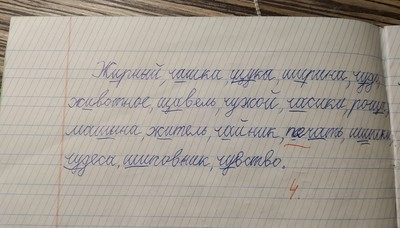 Жирный, чашка, щука, ширина, чудо,
животное, щавель, чужой, часики, роща,
машина, житель, чайник, печать,
чудеса, шиповник, чувство.
4